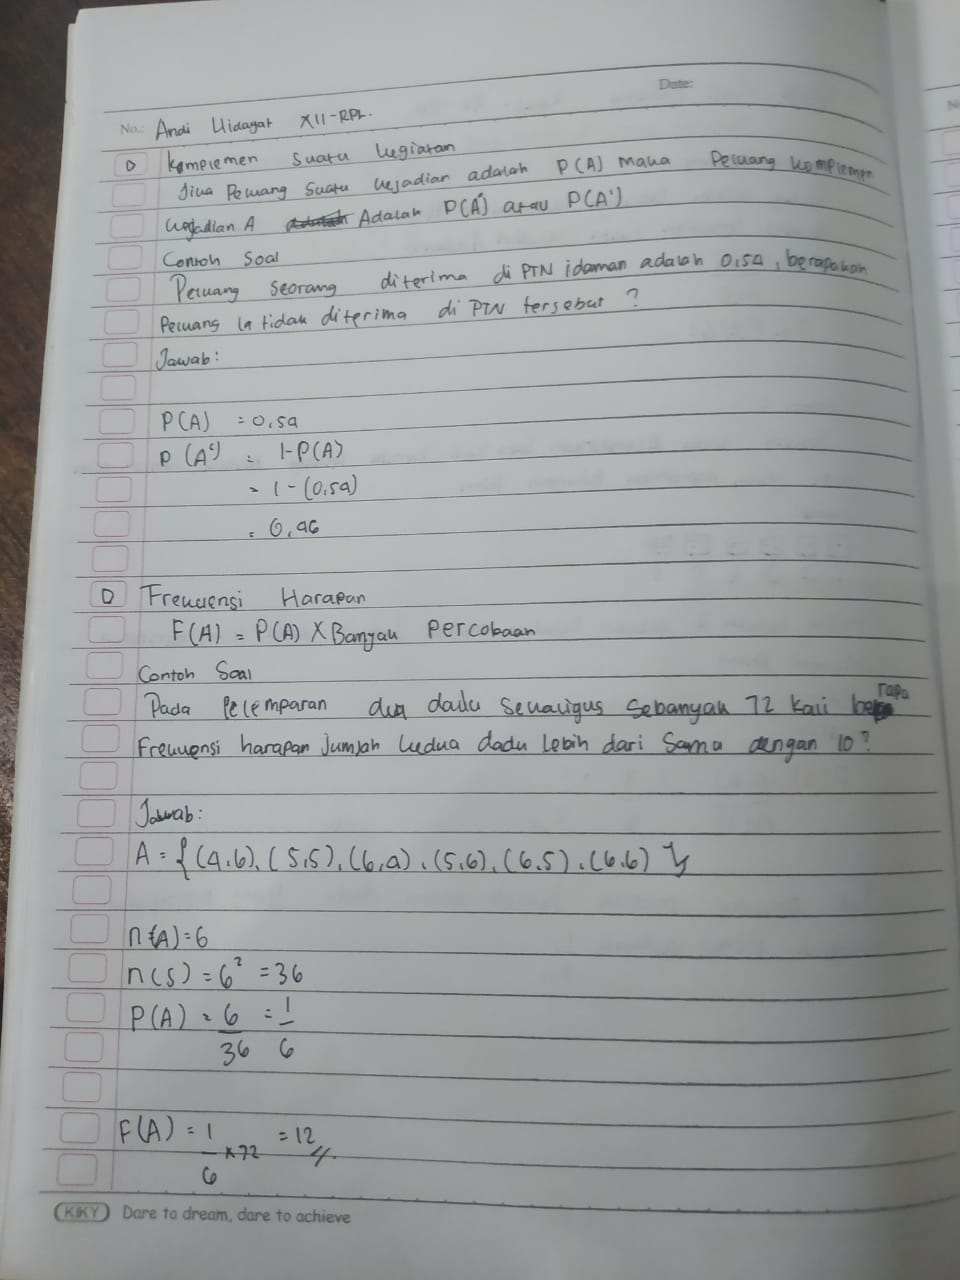 Date:
No.: Andi Hidayat XII-RPL.
D Komplemen Suatu kegiatan
Jika Peluang Suatu kejadian adalah P(A) maka Peluang komplemen
kejadian A Adalah P(A') atau P(A')
Contoh Soal
Peluang seorang diterima di PTN idaman adalah 0,54, berapakah
Peluang ia tidak diterima di PTN tersebut ?
Jawab:
P(A) = 0,54
P(Aᶜ) = 1-P(A)
= 1-(0,54)
= 0,46
D Frekuensi Harapan
F(A) = P(A) X Banyak Percobaan
Contoh Soal
Pada Pelemparan dua dadu sekaligus sebanyak 72 kali berapa
Frekuensi harapan jumlah kedua dadu lebih dari sama dengan 10?
Jawab:
A = {(4,6), (5,5), (6,4), (5,6), (6,5), (6,6)}
n(A)=6
n(S) = 6² = 36
P(A) = 6/36 = 1/6
F(A) = 1/6 x72 = 12//.
KIKY Dare to dream, dare to achieve